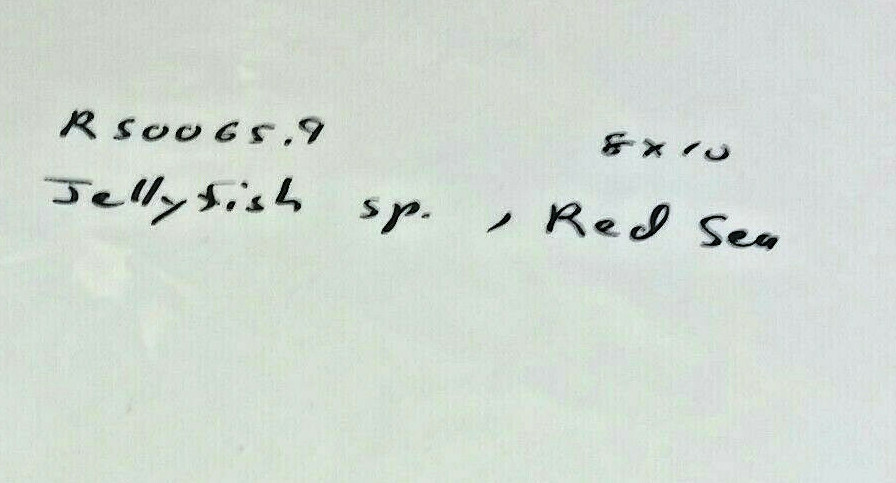 RS0065.9 8x10
Jellyfish sp., Red Sea